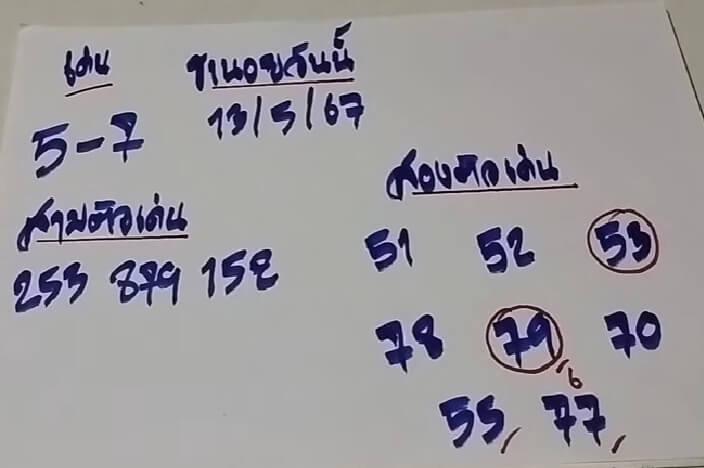 เด่น
ฮานอยวันนี้
13/5/67
5-7
สามตัวเด่น
253 879 152
สองตัวเด่น
51 52 53
78 79 70
6
55, 77,